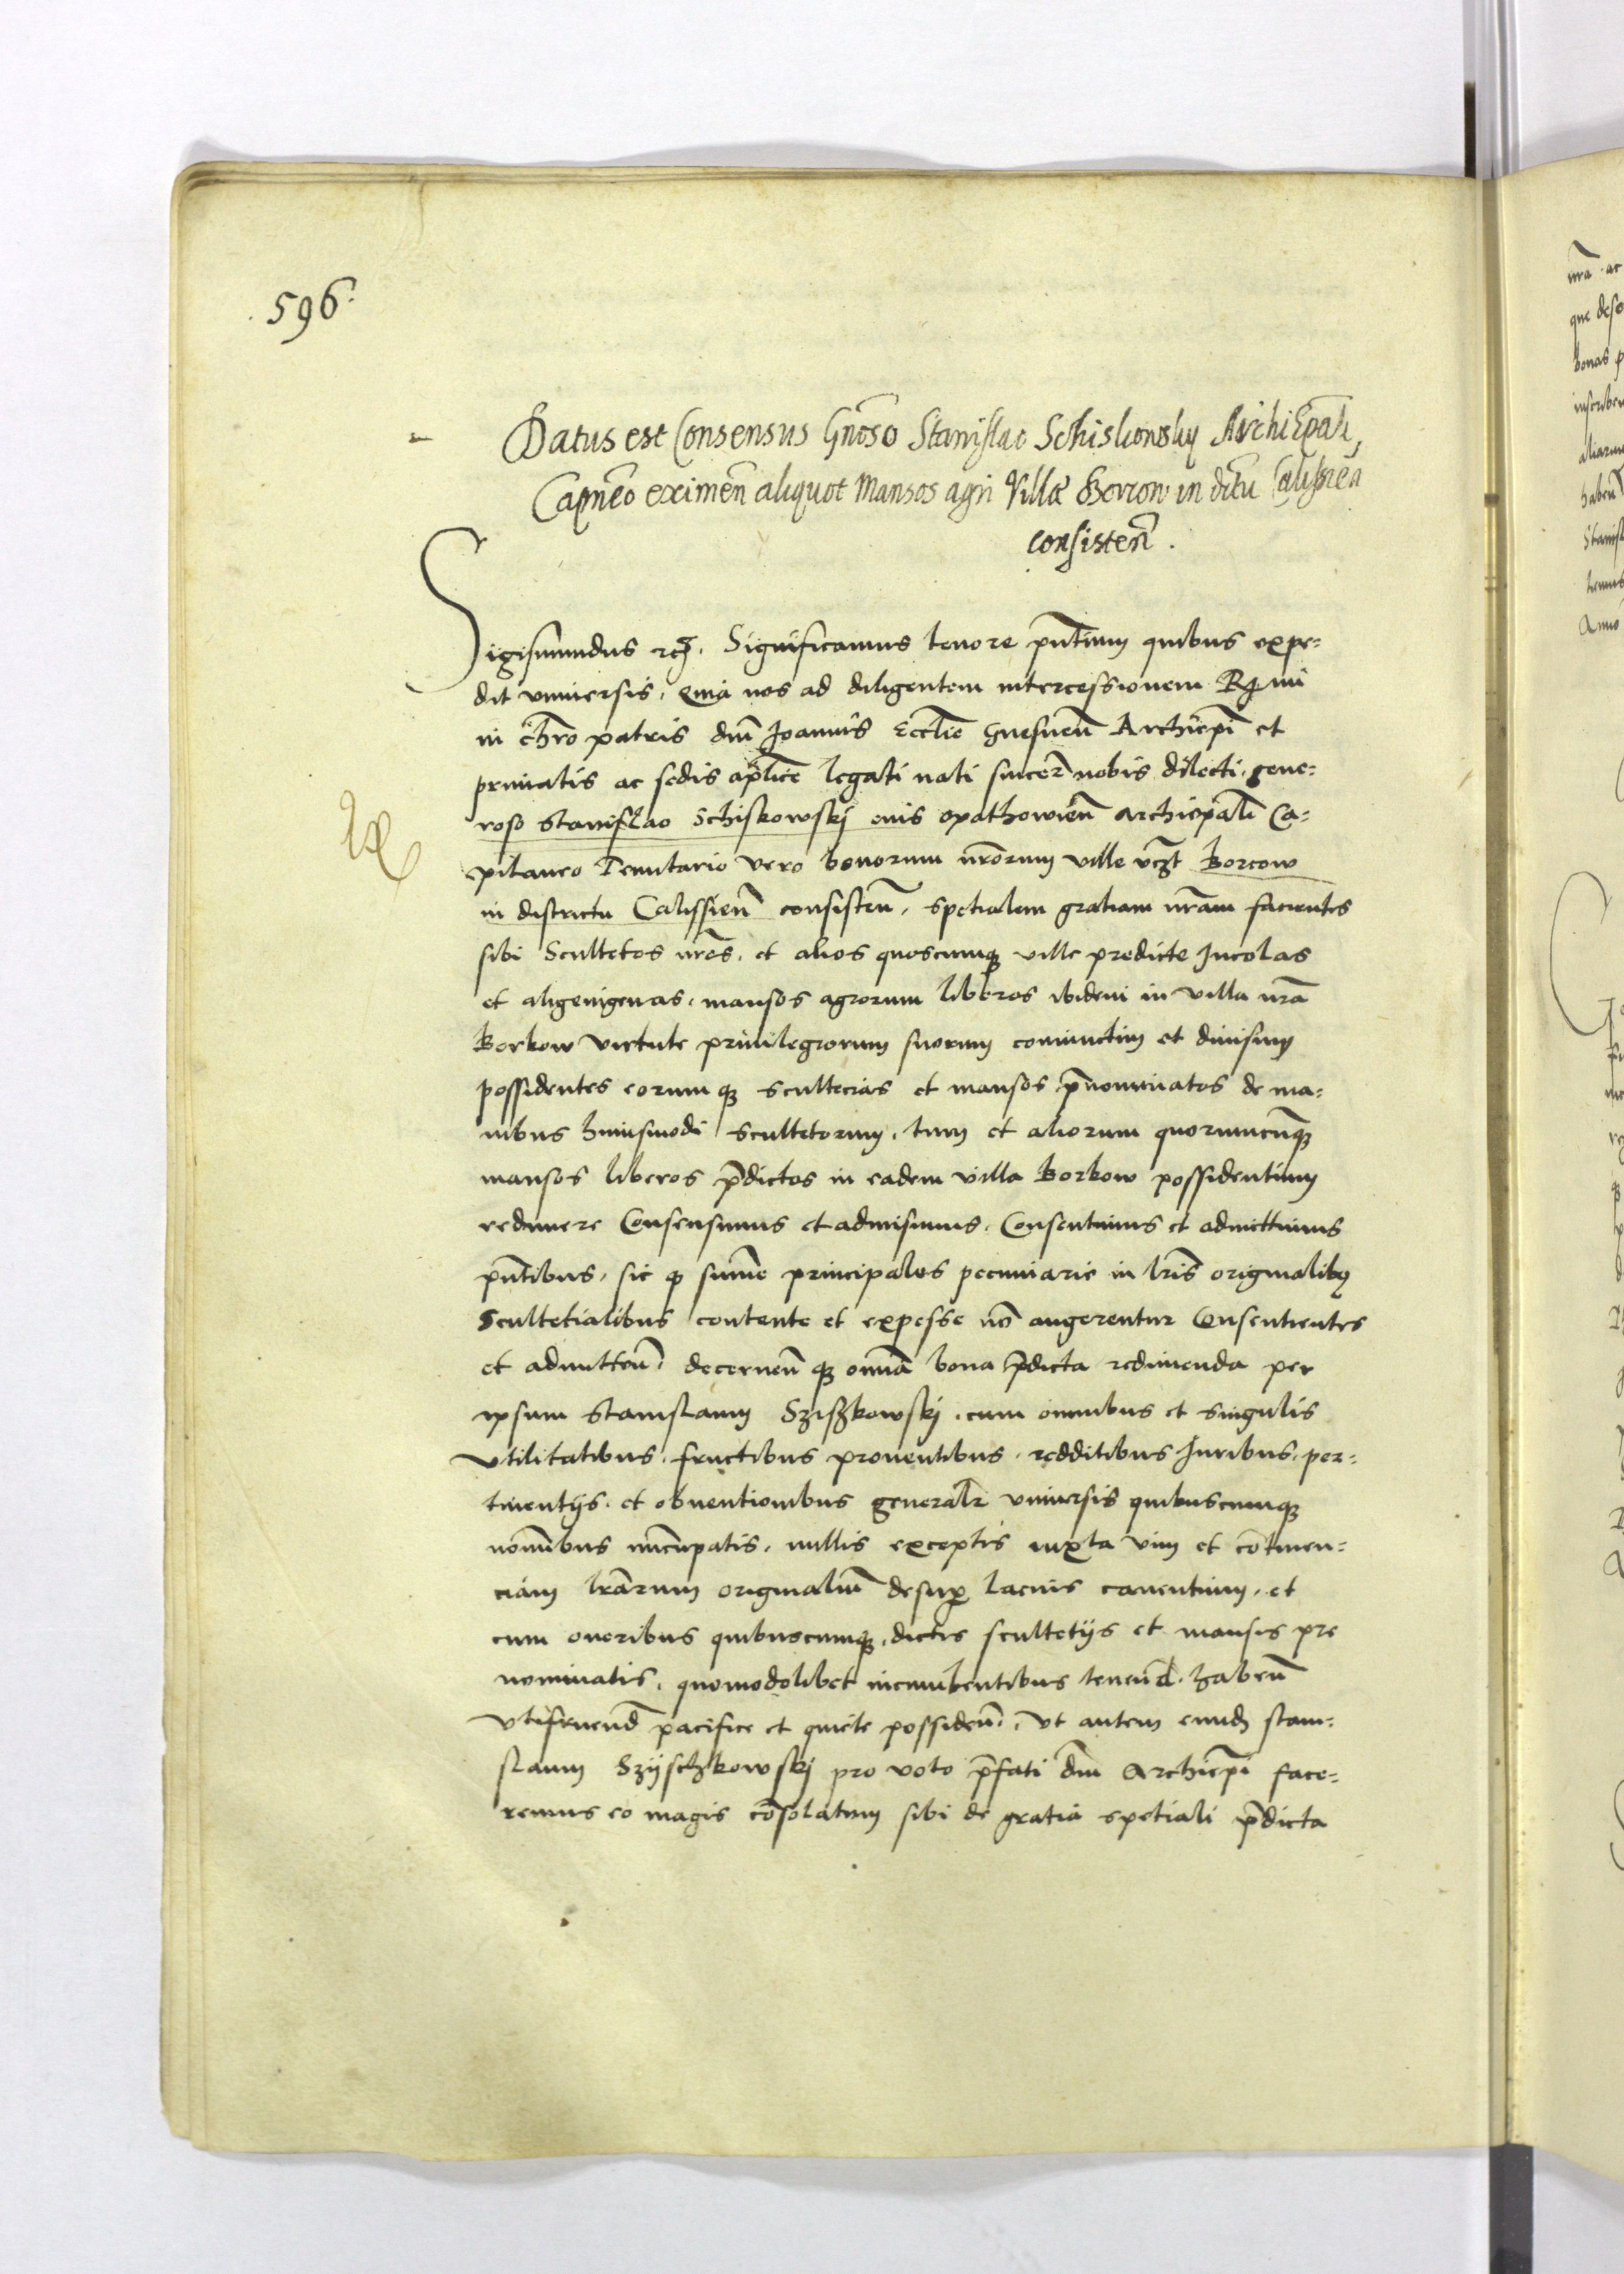 596
Datus est Consensus Gnōso Stanislao Schiskowsky ArchiEpāli
Capnēo eximēn aliquot Mansos agri Villæ Borcow in dttu Calissien
consisten̄.
Sigismundus rcz. Significamus tenore pn̄tium quibus expe-
dit vniuersis, quia nos ad diligentem intercessionem Rmi
in chr̄o patris dnī Joannis Eccl̄ie Gnesnen̄ Archiepī et
primatis ac sedis apl̄ice legati nati sincer̄ nobis dilecti, gene-
roso Stanislao Schiskowskj opathowien̄ Archiepāli Ca-
pitaneo Tenutario vero bonorum nr̄orum ville vcz̄t Borcow
in districtu Calissien̄ consisten̄, spetialem gratiam nr̄am facientes
sibi Scultetos nr̄os, et alios quoscumqz ville predicte Incolas
et aligenigenas, mansos agrorum liberos ibidem in villa nr̄a
Borkow virtute priuilegiorum suorum coniunctim et diuisim
possidentes eorumqz scultecias et mansos pn̄ominatos de ma-
nibus huiusmodi scultetorum, tum et aliorum quorumcūqz
mansos liberos p̄dictos in eadem villa Borkow possidentium
redimere Consensimus et admisimus, Consentimus et admittimus
pn̄tibus, sic q̄ summe principales pecuniarie in lr̄is originalibq
Scultetialibus contente et expesse nō augerentur Consentientes
et admitten̄, decernen̄qz omā bona p̄dicta redimenda per
ipsum Stanislaum Sziszkowskj, cum omnibus et singulis
vtilitatibus, fructibus prouentibus, redditibus Juribus, per-
tinentijs, et obuentionibus generalr̄ vniuersis quibuscumqz
nominibus nūcupatis, nullis exceptis iuxta vim et cōtinen-
ciam lrārum originalium desuꝑ lacius canentium, et
cum oneribus quibuscumqz, dictis scultetijs et mansis pre
nominatis, quomodolibet incumbentibus tenen̄d. haben̄
vtifruend̄ pacifice et quiete possiden̄. Vt autem eundz Stani-
slaum Szijschkowskj pro voto p̄fati dnī Archiepī face-
remus eo magis cōsolatum sibi de gratia spetiali p̄dicta